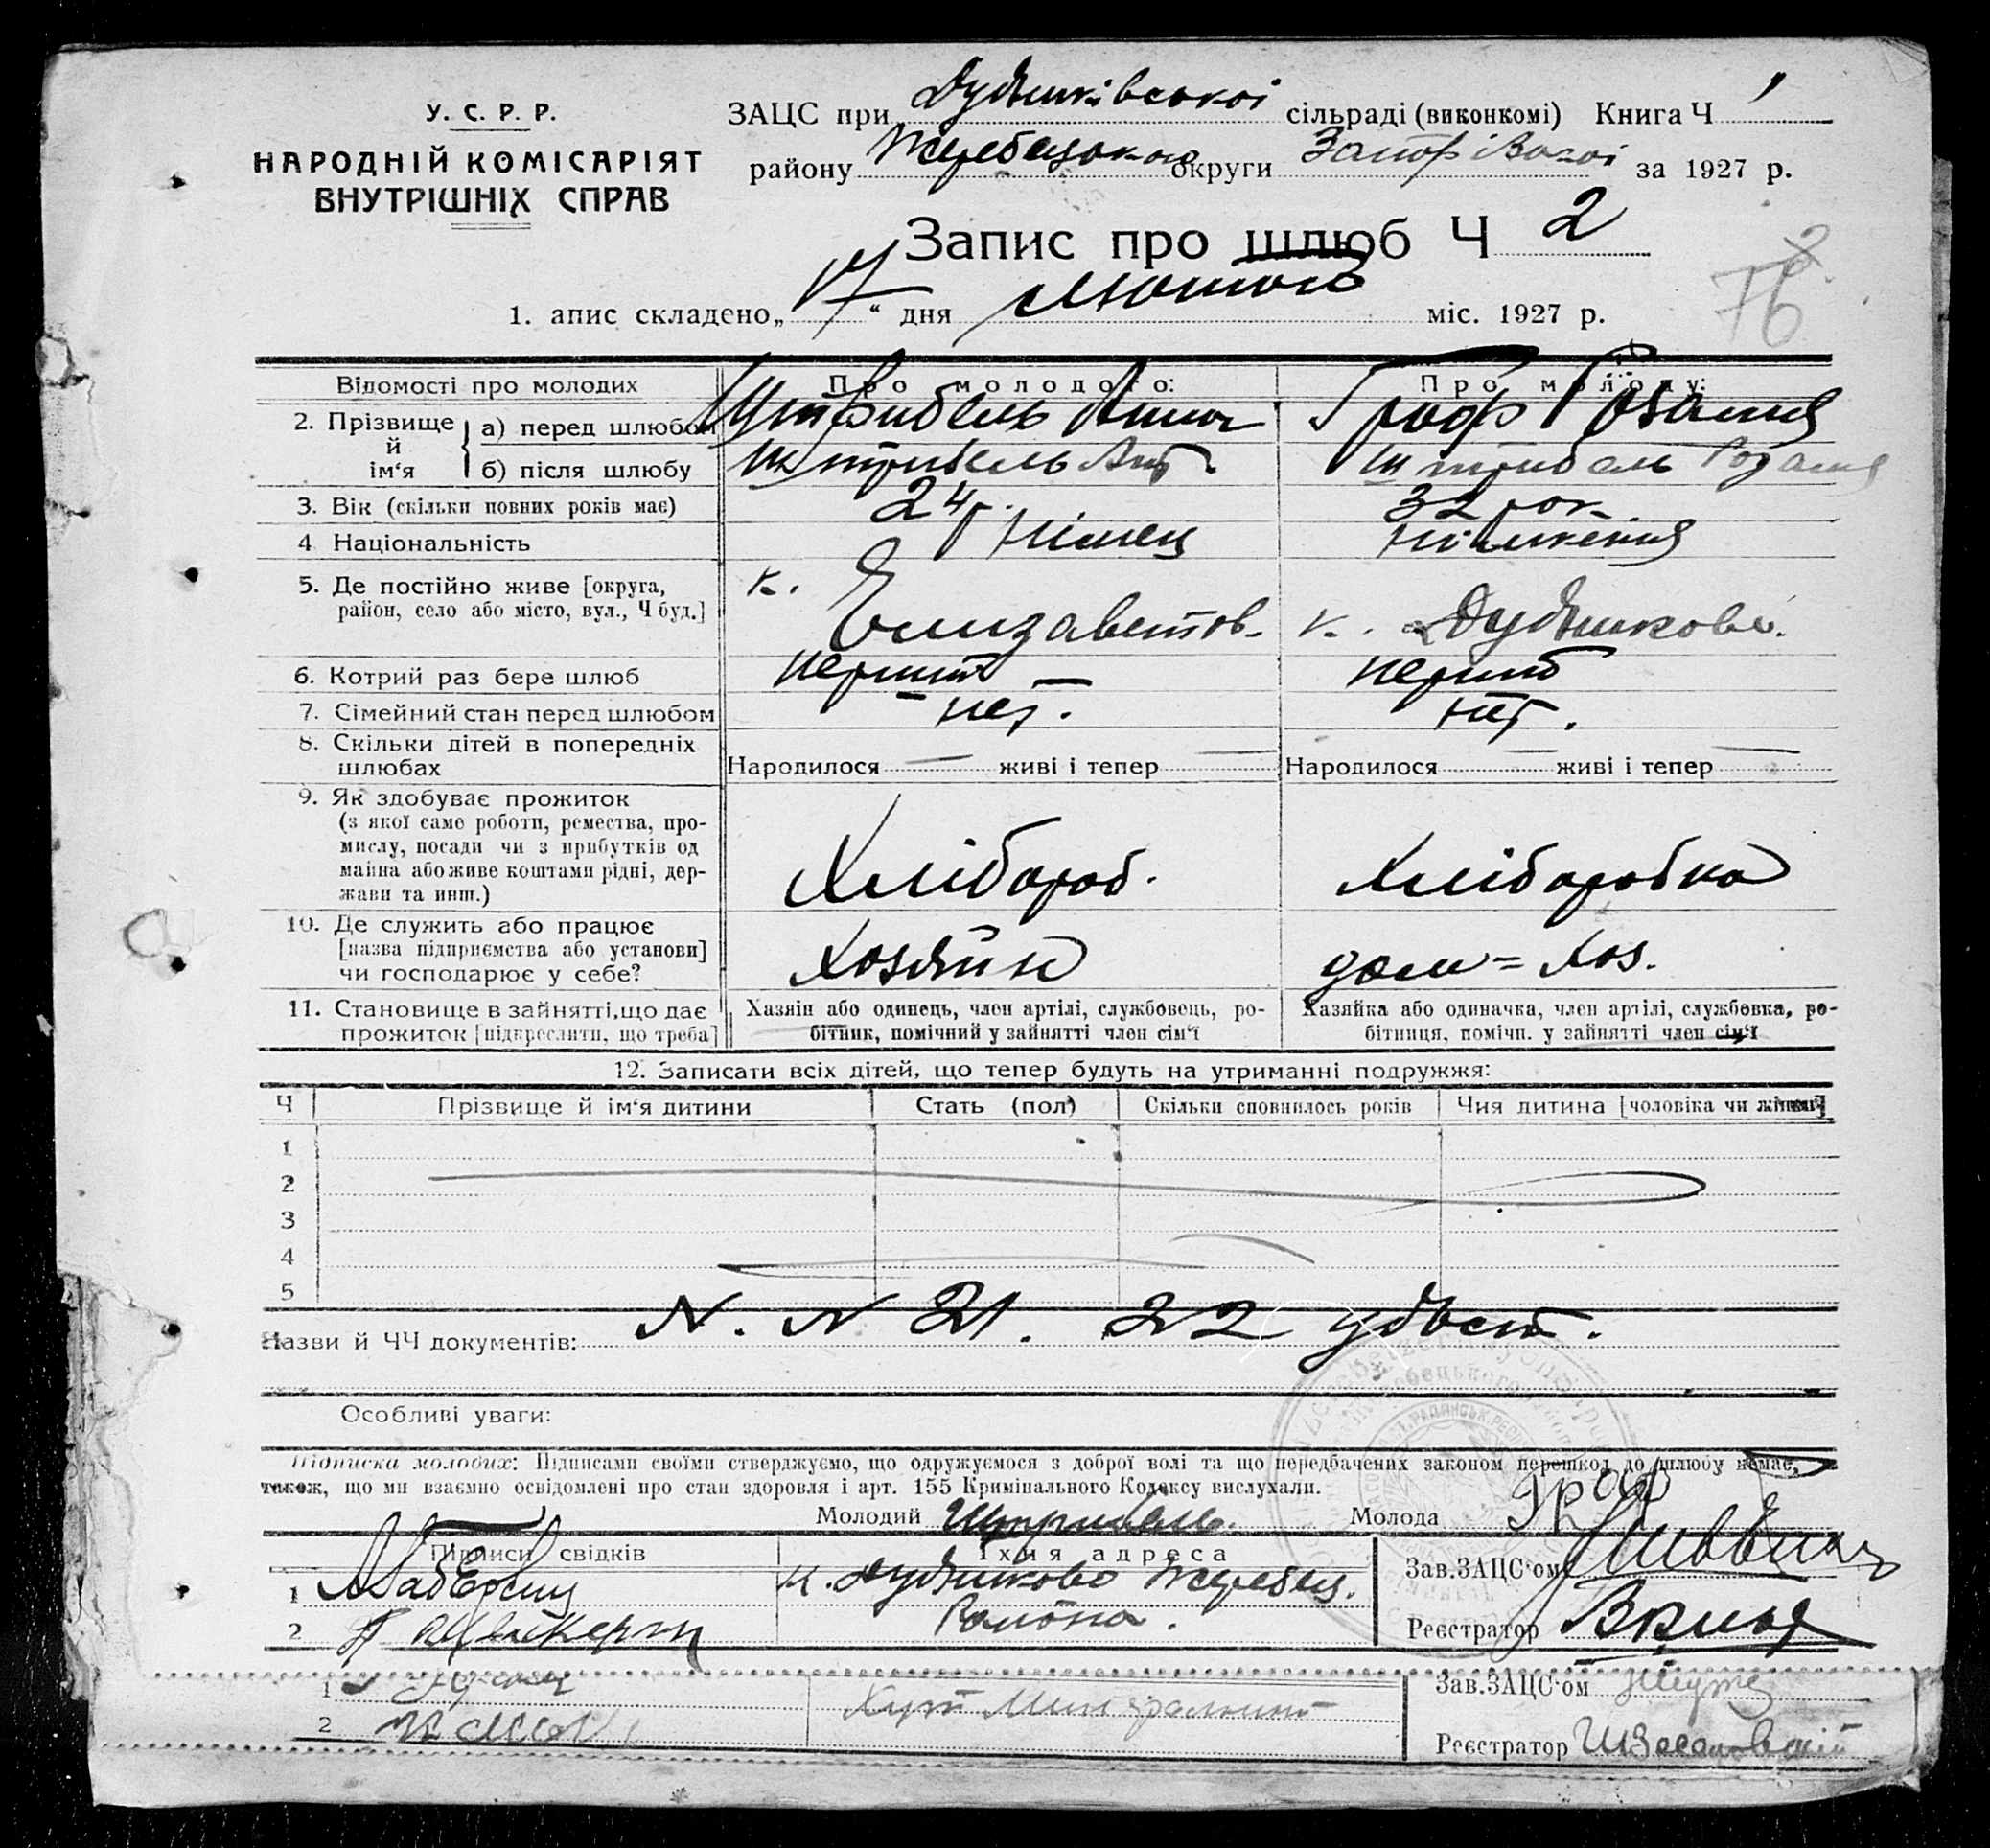 У. С. Р. Р.
НАРОДНІЙ КОМІСАРІЯТ
ВНУТРІШНІХ СПРАВ
ЗАЦС при сільраді (виконкомі) Книга Ч 1
району Жеребецького округи Запорізької за 1927 р.
Запис про шлюб Ч 2
76
1. апис складено „17“ дня Лютого міс. 1927 р.
Відомості про молодих Про молодого: Про молоду:
2. Прізвище й ім‘я
а) перед шлюбом Штрибель Граф Розалия
б) після шлюбу Штрибель Ант. Штрибель Розалия
3. Вік (скільки повних років має) 24 р. 32 рок.
4 Національність Німец Німкеня
5. Де постійно живе [округа, район, село або місто, вул., Ч буд.] к. Елизаветов. к.
6. Котрий раз бере шлюб перший перший
7. Сімейний стан перед шлюбом нет. нет.
8. Скільки дітей в попередніх шлюбах Народилося — живі і тепер — Народилося — живі і тепер —
9. Як здобуває прожиток
(з якої саме роботи, ремества, про-
мислу, посади чи з прибутків од
майна або живе коштами рідні, дер-
жави та инш.) Хлібороб. Хліборобка
10. Де служить або працює
[назва підприємства або установи]
чи господарює у себе? Хозяйн дом=хоз.
11. Становище в зайнятті, що дає
прожиток [підкреслити, що треба]
Хазяін або одинець, член артілі, службовець, ро-
бітник, помічний у зайнятті член сім‘ї
Хазяйка або одиначка, член артілі, службовка, ро-
бітниця, помічн. у зайнятті член сім‘ї
12. Записати всіх дітей, що тепер будуть на утриманні подружжя:
Ч Прізвище й ім‘я дитини Стать (пол) Скільки сповнилось років Чия дитина [чоловіка чи жінки]
1
2
3
4
5
Назви й ЧЧ документів: N. N 21. 22 удост.
Особливі уваги:
Підписка молодих: Підписами своїми стверджуємо, що одружуємося з доброї волі та що передбачених законом перешкод до шлюбу немає,
також, що ми взаємно освідомлені про стан здоровля і арт. 155 Кримінального Кодексу вислухали.
Молодий Штрибель. Молода Граф
Підписи свідків Їхня адреса Зав.ЗАЦС‘ом
1 к. Жеребец.
2 Района. Реєстратор
1 Хут Зав.ЗАЦС‘ом
2 Реєстратор